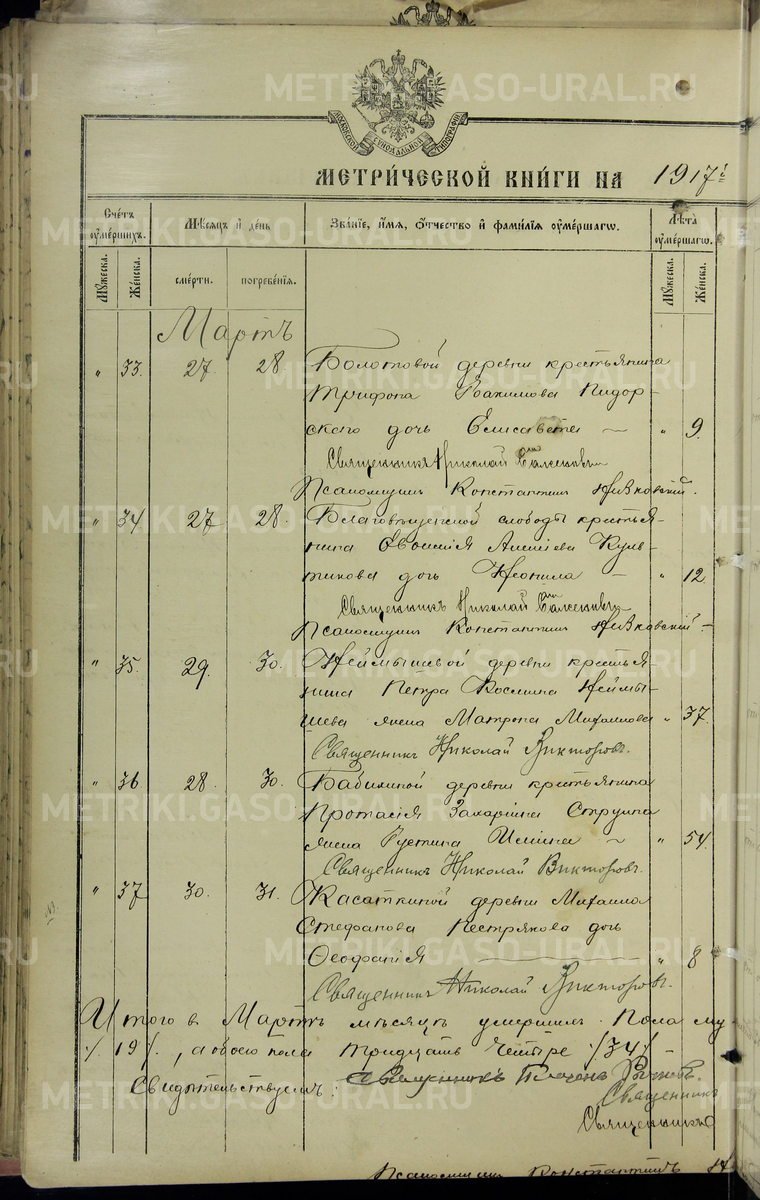 METRIKI.GASO-URAL.RU
МОСКОВСКОЙ СѴНОДАЛЬНОЙ ТИПОГРАФІИ
МЕТРИ́ЧЕСКОЙ КНИ́ГИ НА 1917 г.
Сче́тъ ᲂумершихъ.
Мѣсяцъ и день
Зва́нїе, и́мѧ, ѻ́тчество и҆ фами́лїѧ ᲂу҆ме́ршагѡ.
Лѣ́та ᲂу҆ме́ршагѡ.
Мꙋжеска.
Же́нска.
сме́рти.
погребе́нїѧ.
Мꙋжеска.
Же́нска.
Мартъ
" 33. 27. 28. Болотовой деревни крестьянина
Трифона Іоакимова Пидор-
скаго дочь Елисавета — " 9.
Священникъ Николай
Псаломщикъ Константин
" 34 27 28. Благовѣщенской слободы крестья-
нина Алексіева Куль-
тикова дочь Неонила — " 12
Священникъ Николай
Псаломщикъ Константин
" 35. 29. 30. Неймышевой деревни крестья-
нина Петра Космина Неймы-
шева жена Матрона Михаилова " 37.
Священникъ Николай Викторовъ.
" 36. 28 30. Бабихиной деревни крестьянина
Протасія Захаріина Струнина
жена Іустина Ильина ~ " 54.
Священникъ Николай Викторовъ.
" 37 30. 31. Касаткиной деревни Михаила
Стефанова Пестрякова дочь
Ѳеофанія — " 8
Священникъ Николай Викторовъ.
Итого в Мартѣ мѣсяцѣ умерших пола му
/. 19 /. , а обоего пола тридцать четыре /34/
Свидѣтельствуемъ: Священникъ
Священникъ
Священникъ
Псаломщикъ Константинъ